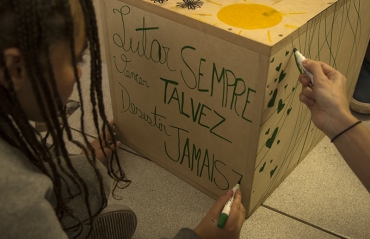 Lutar SEMPRE
Vencer TALVEZ
Desistir JAMAIS